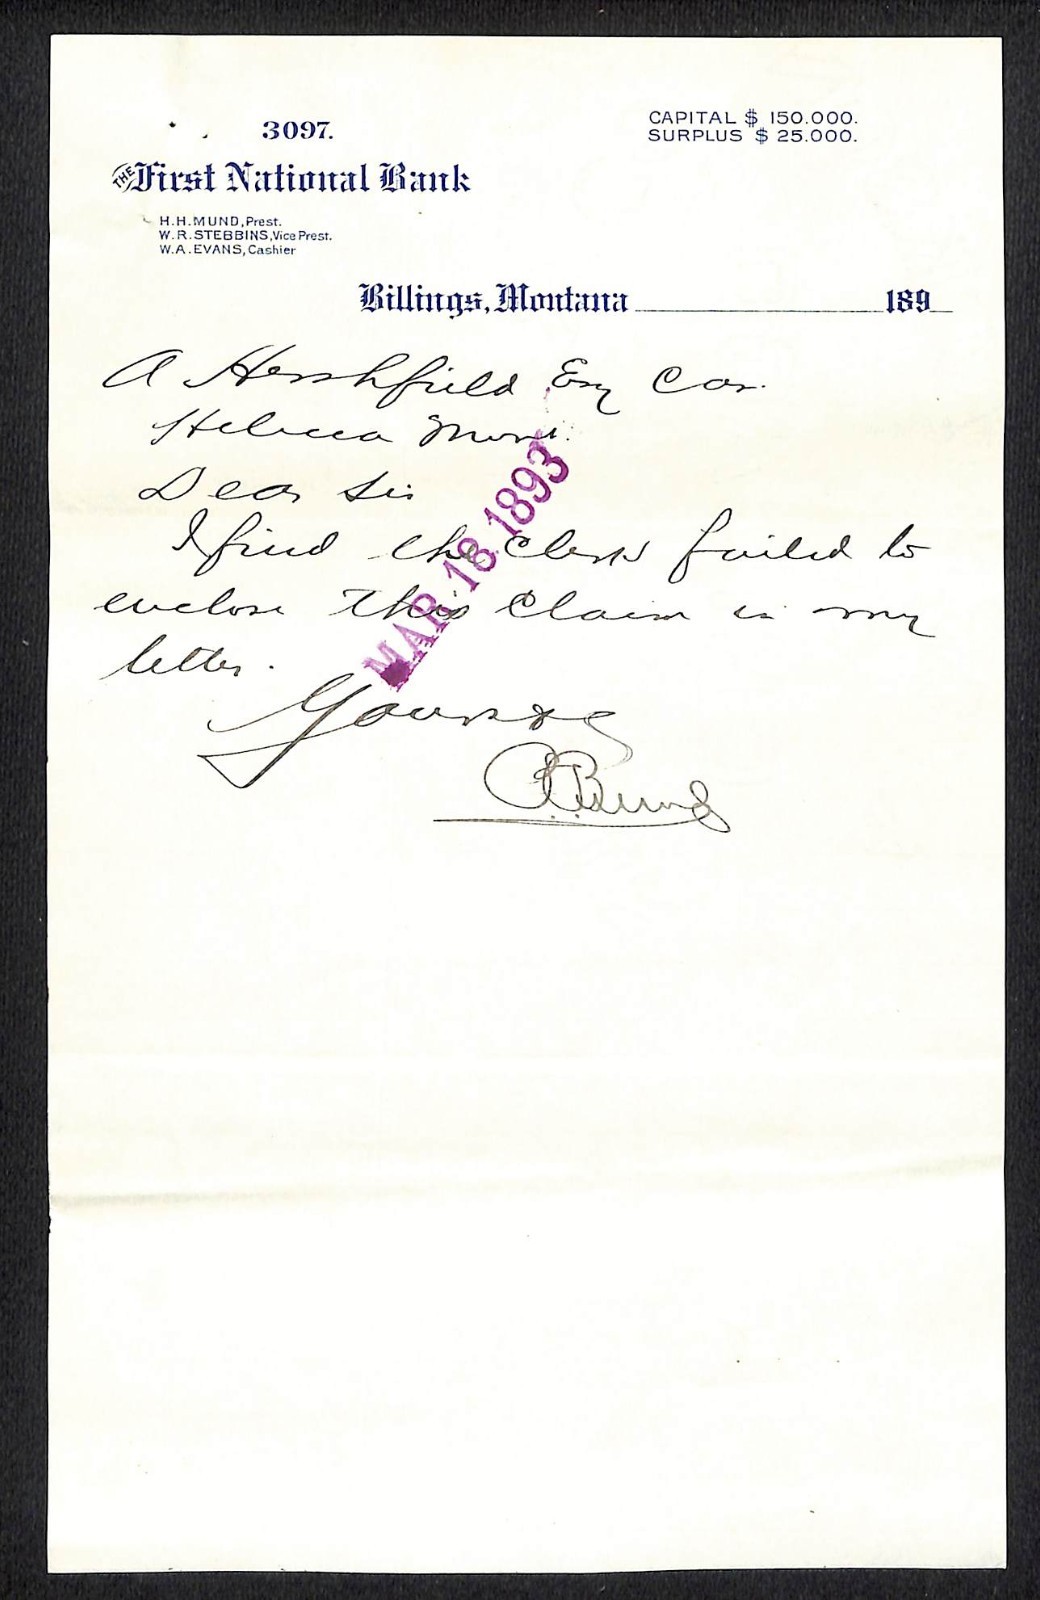 3097.
CAPITAL $ 150.000.
SURPLUS $ 25.000.
THE First National Bank
H.H. MUND, Prest.
W.R. STEBBINS, Vice Prest.
W.A. EVANS, Cashier
Billings, Montana 189
A Hershfield Esq Cas.
Helena Mont.
Dear Sir
I find the Clerk failed to
enclose this Claim in my
letter.
Yours
MAR 18 1893